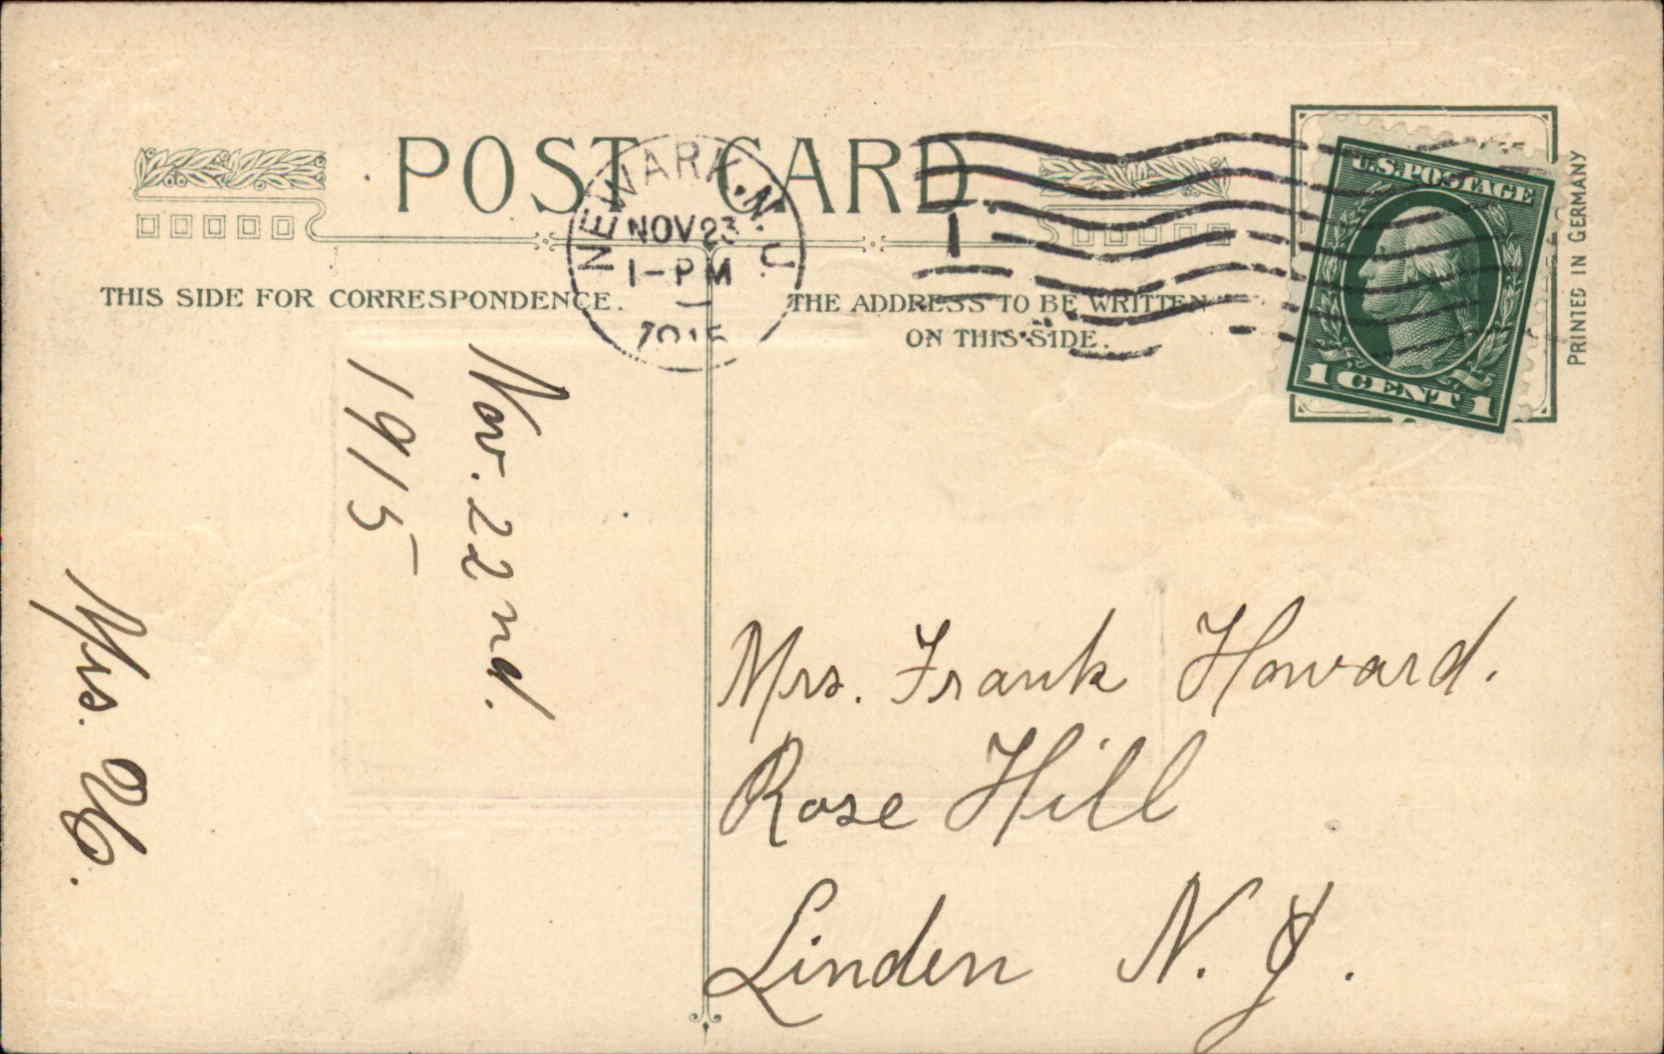 POST CARD.
NEWARK, N.J.
NOV 23
1-PM
1915
1
U.S. POSTAGE
1 CENT 1
PRINTED IN GERMANY
THIS SIDE FOR CORRESPONDENCE.
THE ADDRESS TO BE WRITTEN
ON THIS SIDE.
Nov. 22nd.
1915
Mrs.
Mrs. Frank Howard.
Rose Hill
Linden N. J.